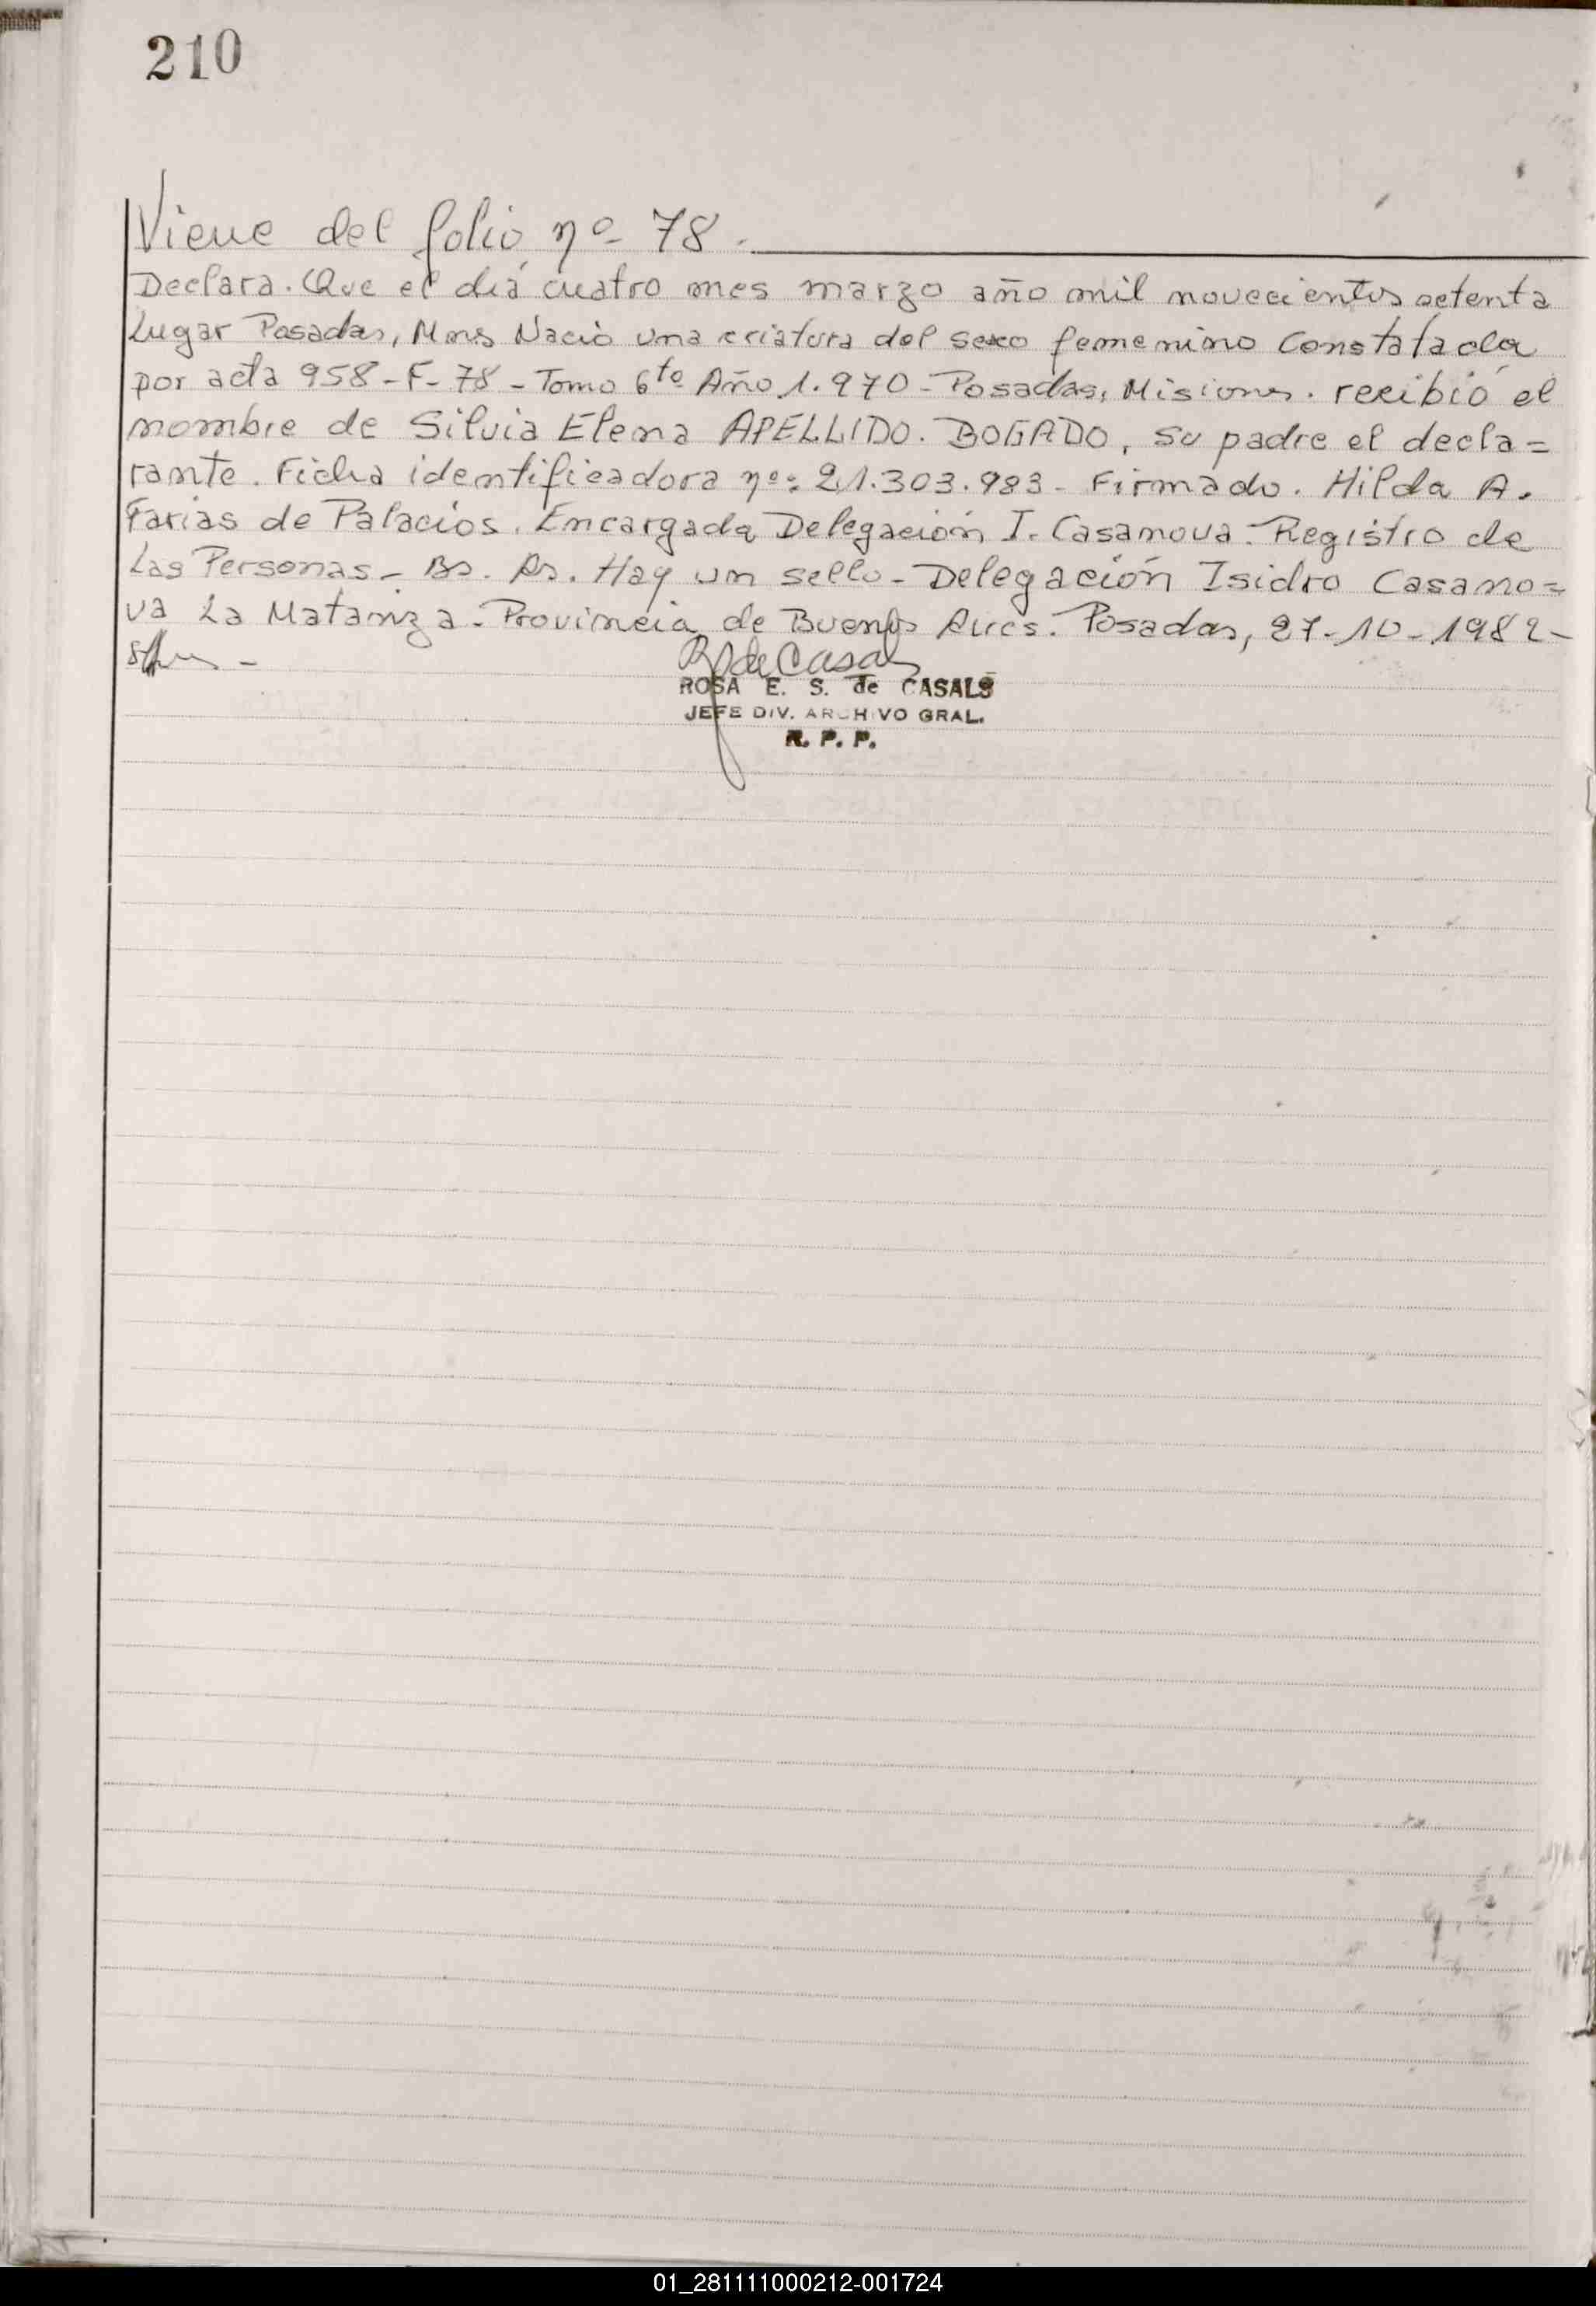 210
Viene del folio nº 78.
Declara. Que el día cuatro mes marzo año mil novecientos setenta
Lugar Posadas, Mnes Nació una criatura del sexo femenino Constatada
por acta 958-F-78-Tomo 6to Año 1.970-Posadas, Misiones. recibió el
nombre de Silvia Elena APELLIDO. BOGADO, su padre el decla=
rante. Ficha identificadora nº: 21.303.983- Firmado. Hilda A.
Farias de Palacios. Encargada Delegación I. Casanova. Registro de
Las Personas- Bs. As. Hay un sello-Delegación Isidro Casano=
va La Matanza. Provincia de Buenos Aires. Posadas, 27-10-1982-
R de Casals
ROSA E. S. de CASALS
JEFE DIV. ARCHIVO GRAL.
R. P. P.
01_281111000212-001724